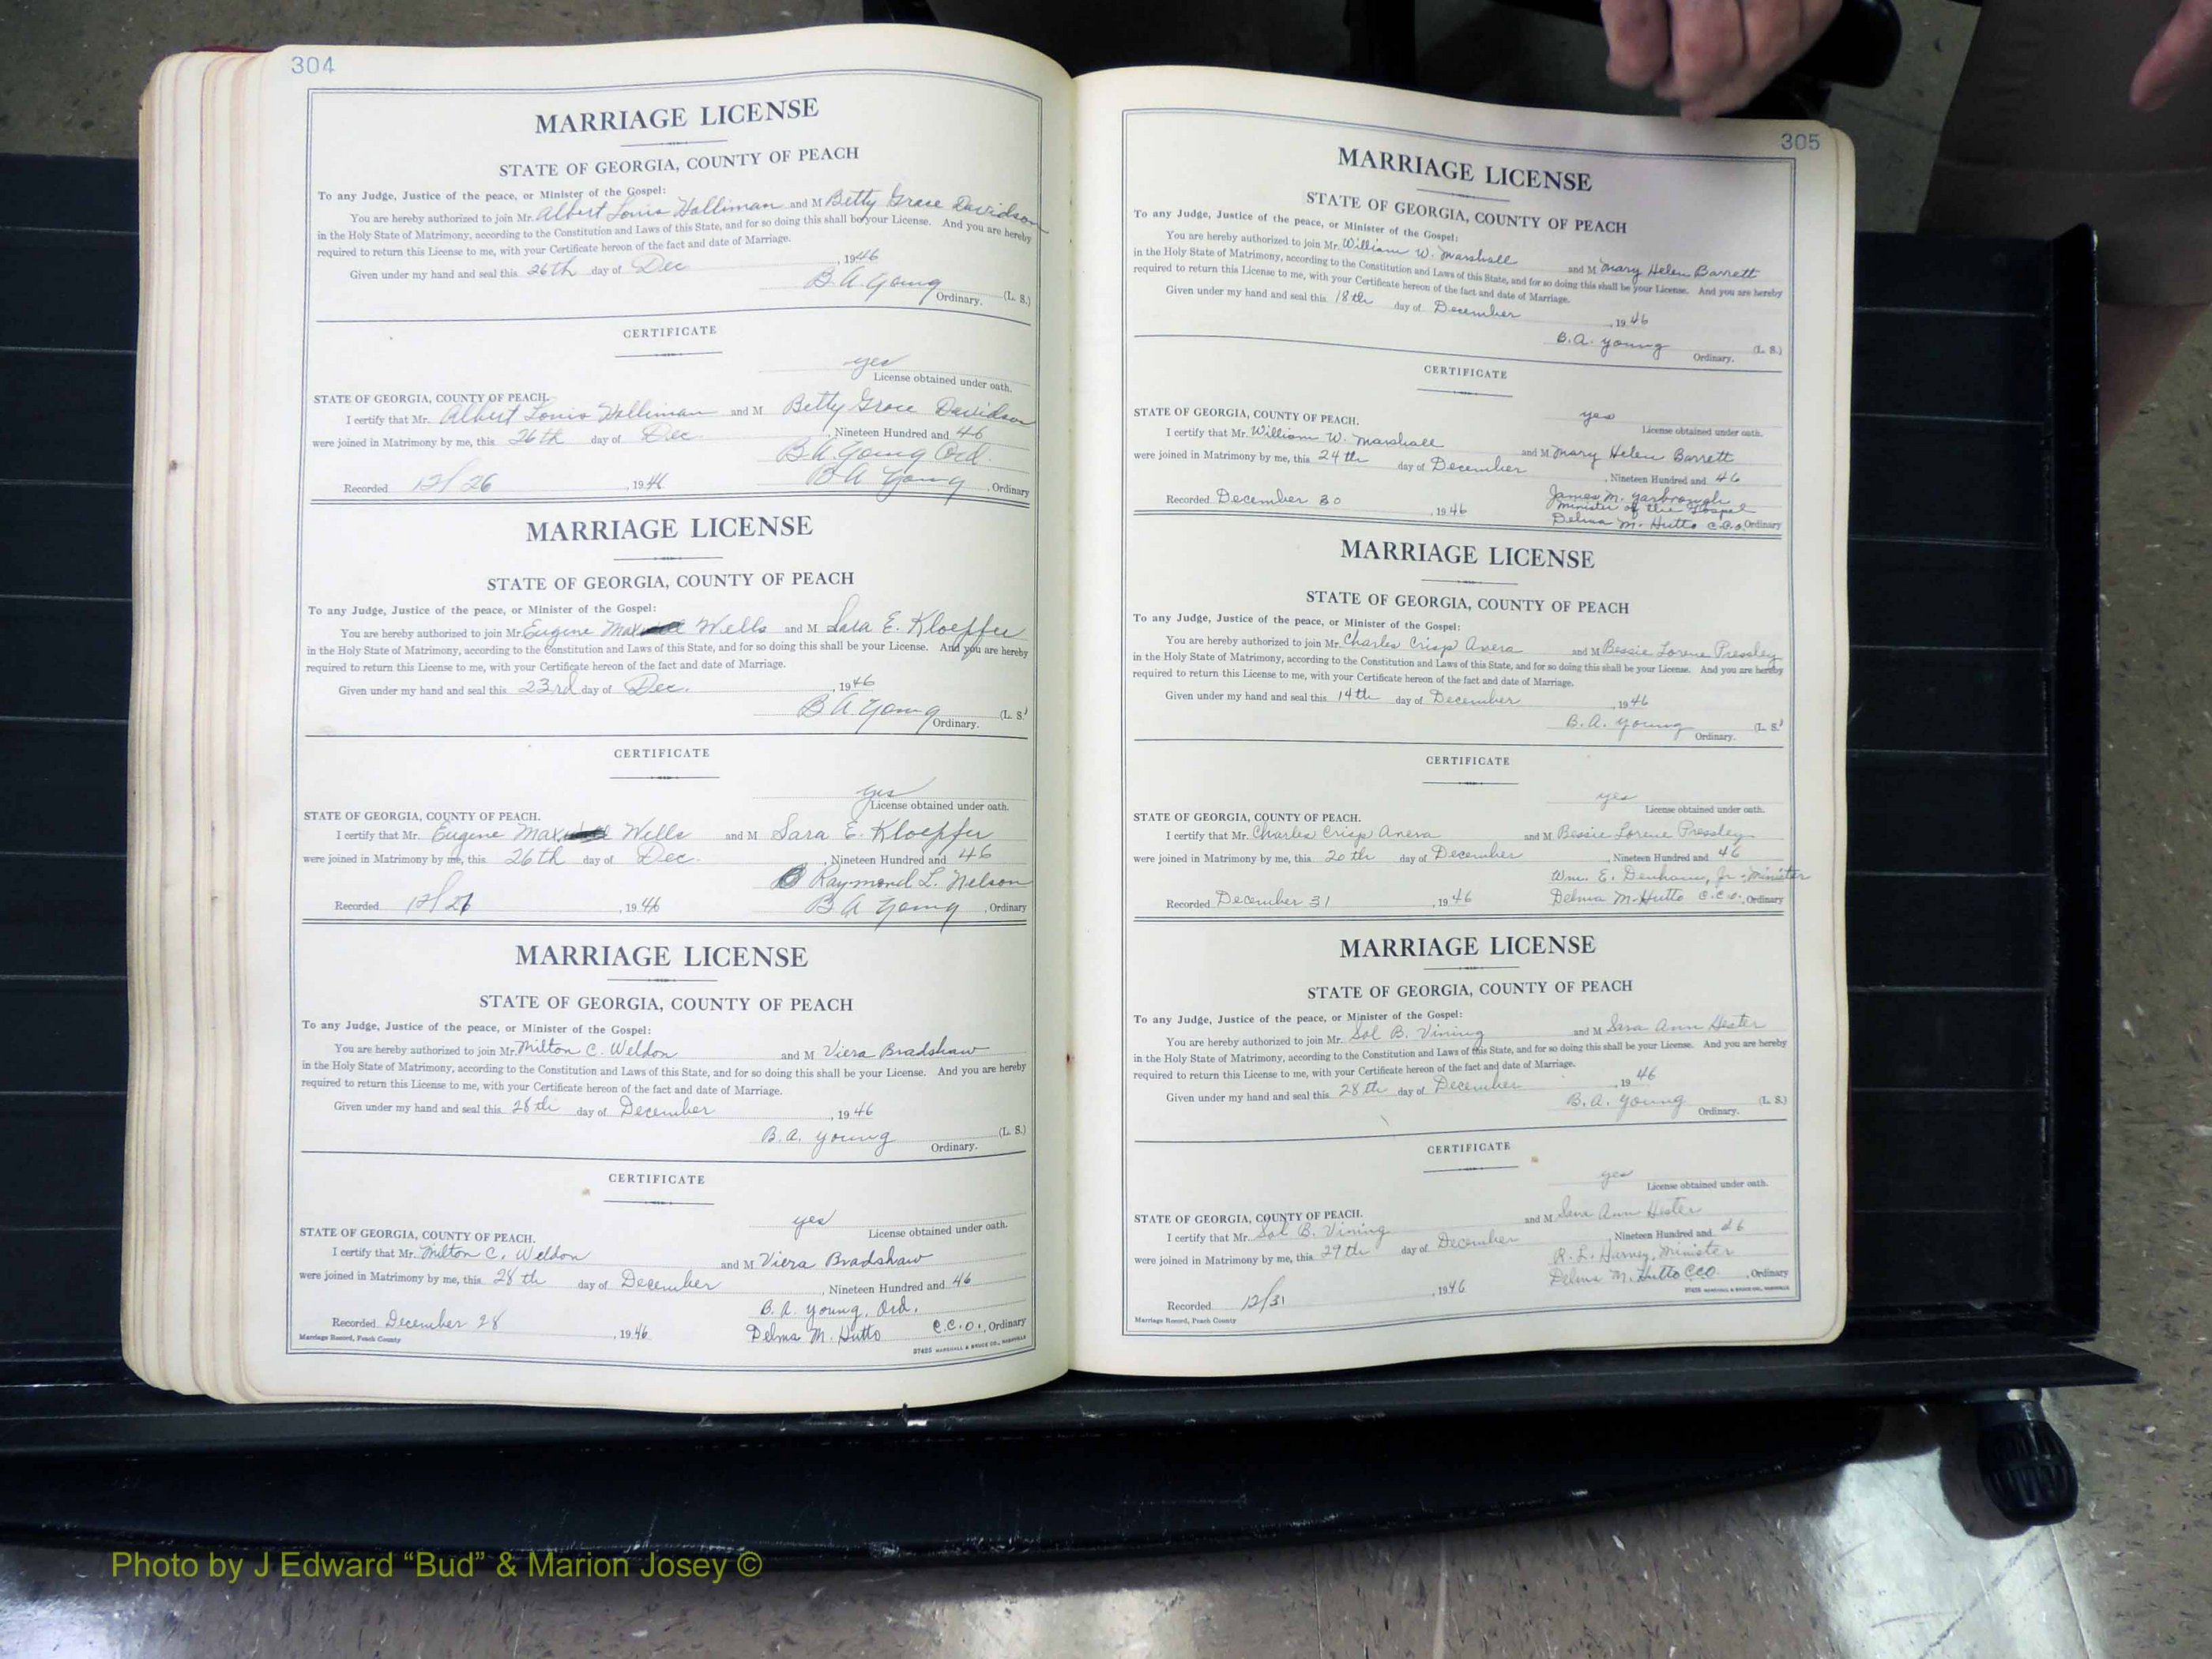 304
MARRIAGE LICENSE
STATE OF GEORGIA, COUNTY OF PEACH
To any Judge, Justice of the peace, or Minister of the Gospel:
You are hereby authorized to join Mr. Albert Louis Holliman and M Betty Grace Davidson
in the Holy State of Matrimony, according to the Constitution and Laws of this State, and for so doing this shall be your License. And you are hereby
required to return this License to me, with your Certificate hereon of the fact and date of Marriage.
Given under my hand and seal this 26th day of Dec , 1946
B. A. Young
Ordinary. (L. S.)
CERTIFICATE
yes
License obtained under oath.
STATE OF GEORGIA, COUNTY OF PEACH.
I certify that Mr. Albert Louis Holliman and M Betty Grace Davidson
were joined in Matrimony by me, this 26th day of Dec. , Nineteen Hundred and 46
B A. Young Ord.
Recorded 12/26 , 1946 B A Young , Ordinary
MARRIAGE LICENSE
STATE OF GEORGIA, COUNTY OF PEACH
To any Judge, Justice of the peace, or Minister of the Gospel:
You are hereby authorized to join Mr. Eugene Wells and M Sara E. Kloepfer
in the Holy State of Matrimony, according to the Constitution and Laws of this State, and for so doing this shall be your License. And you are hereby
required to return this License to me, with your Certificate hereon of the fact and date of Marriage.
Given under my hand and seal this 23rd day of Dec. , 1946
B A. Young
Ordinary. (L. S.)
CERTIFICATE
yes
License obtained under oath.
STATE OF GEORGIA, COUNTY OF PEACH.
I certify that Mr. Eugene Wells and M Sara E. Kloepfer
were joined in Matrimony by me, this 26th day of Dec. , Nineteen Hundred and 46
Raymond L. Nelson
Recorded , 1946 B A Young , Ordinary
MARRIAGE LICENSE
STATE OF GEORGIA, COUNTY OF PEACH
To any Judge, Justice of the peace, or Minister of the Gospel:
You are hereby authorized to join Mr. Milton C. Weldon and M Viera Bradshaw
in the Holy State of Matrimony, according to the Constitution and Laws of this State, and for so doing this shall be your License. And you are hereby
required to return this License to me, with your Certificate hereon of the fact and date of Marriage.
Given under my hand and seal this 28th day of December , 1946
B. A. Young (L. S.)
Ordinary.
CERTIFICATE
yes
License obtained under oath.
STATE OF GEORGIA, COUNTY OF PEACH.
I certify that Mr. Milton C. Weldon and M Viera Bradshaw
were joined in Matrimony by me, this 28th day of December , Nineteen Hundred and 46
B. A. Young, Ord.
Recorded December 28 , 1946 Delma M. Hutto C.C.O., Ordinary
Marriage Record, Peach County
37425 MARSHALL & BRUCE CO., NASHVILLE
305
MARRIAGE LICENSE
STATE OF GEORGIA, COUNTY OF PEACH
To any Judge, Justice of the peace, or Minister of the Gospel:
You are hereby authorized to join Mr. William W. Marshall and M Mary Helen Barrett
in the Holy State of Matrimony, according to the Constitution and Laws of this State, and for so doing this shall be your License. And you are hereby
required to return this License to me, with your Certificate hereon of the fact and date of Marriage.
Given under my hand and seal this 18th day of December , 1946
B. A. Young (L. S.)
Ordinary.
CERTIFICATE
yes
License obtained under oath.
STATE OF GEORGIA, COUNTY OF PEACH.
I certify that Mr. William W. Marshall and M Mary Helen Barrett
were joined in Matrimony by me, this 24th day of December , Nineteen Hundred and 46
James M. Yarbrough
Minister of the Gospel
Recorded December 30 , 1946 Delma M. Hutto C.C.O. Ordinary
MARRIAGE LICENSE
STATE OF GEORGIA, COUNTY OF PEACH
To any Judge, Justice of the peace, or Minister of the Gospel:
You are hereby authorized to join Mr. Charles Crisp and M Bessie Lorene Pressley
in the Holy State of Matrimony, according to the Constitution and Laws of this State, and for so doing this shall be your License. And you are hereby
required to return this License to me, with your Certificate hereon of the fact and date of Marriage.
Given under my hand and seal this 14th day of December , 1946
B. A. Young (L. S.)
Ordinary.
CERTIFICATE
yes
License obtained under oath.
STATE OF GEORGIA, COUNTY OF PEACH.
I certify that Mr. Charles Crisp and M Bessie Lorene Pressley
were joined in Matrimony by me, this 20th day of December , Nineteen Hundred and 46
Wm. E. Denham, Jr. Minister
Recorded December 31 , 1946 Delma M. Hutto C.C.O., Ordinary
MARRIAGE LICENSE
STATE OF GEORGIA, COUNTY OF PEACH
To any Judge, Justice of the peace, or Minister of the Gospel:
You are hereby authorized to join Mr. Sol B. Vining and M Sara Ann Hester
in the Holy State of Matrimony, according to the Constitution and Laws of this State, and for so doing this shall be your License. And you are hereby
required to return this License to me, with your Certificate hereon of the fact and date of Marriage.
Given under my hand and seal this 28th day of December , 1946
B. A. Young (L. S.)
Ordinary.
CERTIFICATE
yes
License obtained under oath.
STATE OF GEORGIA, COUNTY OF PEACH.
I certify that Mr. Sol B. Vining and M Sara Ann Hester
were joined in Matrimony by me, this 29th day of December , Nineteen Hundred and 46
R. L. Harvey, Minister
Recorded 12/31 , 1946 Delma M. Hutto CCO , Ordinary
Marriage Record, Peach County
37425 MARSHALL & BRUCE CO., NASHVILLE
Photo by J Edward “Bud” & Marion Josey ©